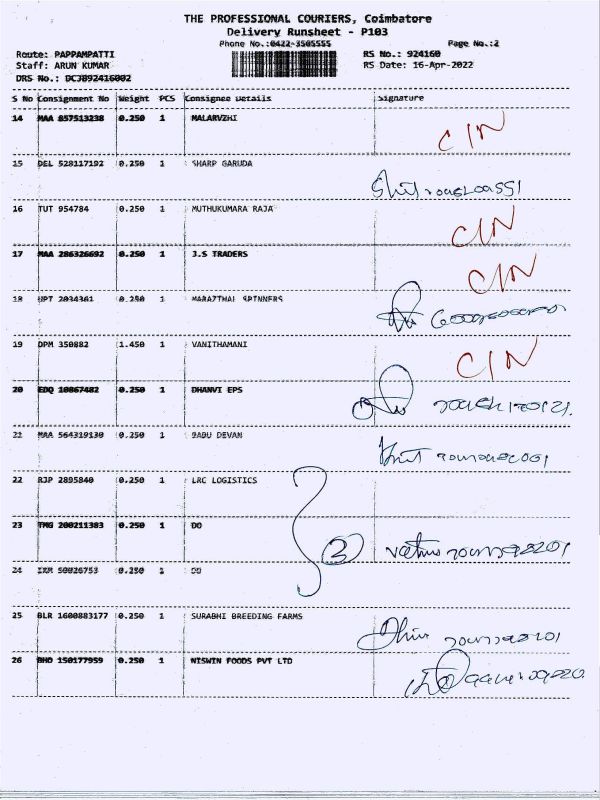 THE PROFESSIONAL COURIERS, Coimbatore
Delivery Runsheet - P103
Phone No.:0422-3505555 Page No.:2
Route: PAPPAMPATTI RS No.: 924160
Staff: ARUN KUMAR RS Date: 16-Apr-2022
DRS No.: DCJB92416002
S No Consignment No Weight PCS Consignee Details Signature
14 MAA 857513238 0.250 1 MALARVZHI CIN
15 DEL 528117192 0.250 1 SHARP GARUDA
16 TUT 954784 0.250 1 MUTHUKUMARA RAJA CIN
17 MAA 286326692 0.250 1 J.S TRADERS CIN
18 UPT 2034361 0.250 1 MARAZTHAL SPINNERS
19 DPM 350882 1.450 1 VANITHAMANI CIN
20 EDQ 10867482 0.250 1 DHANVI EPS
21 MAA 564319130 0.250 1 BABU DEVAN
22 RJP 2895840 0.250 1 LRC LOGISTICS
23 TMG 200211383 0.250 1 DO 2
24 50026753 0.250 1 DO
25 BLR 1600883177 0.250 1 SURABHI BREEDING FARMS
26 BHO 150177959 0.250 1 NISWIN FOODS PVT LTD